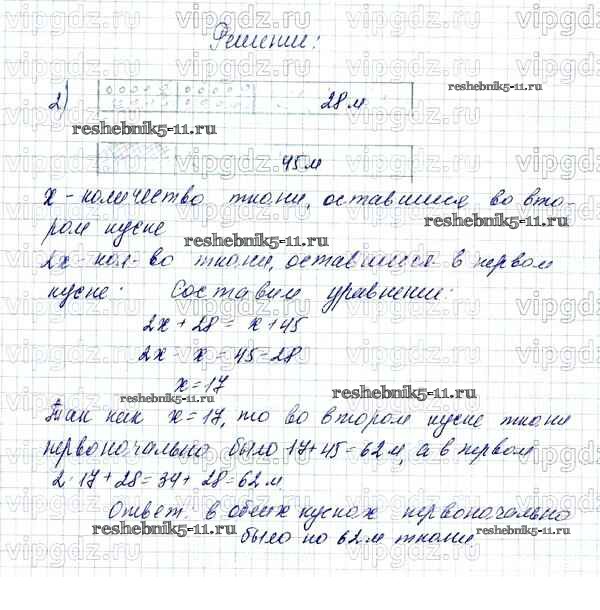 Решение:
2)
28 м
45 м
x - количество ткани, оставшиеся во вто-
ром куске
2x - кол-во ткани, оставшиеся в первом
куске. Составим уравнение:
2x + 28 = x + 45
2x - x = 45 - 28
x = 17
Так как x = 17, то во втором куске ткани
первоначально было 17 + 45 = 62 м, а в первом
2·17 + 28 = 34 + 28 = 62 м
Ответ: в обеих кусках первоначально
было по 62 м ткани.
reshebnik5-11.ru
vipgdz.ru